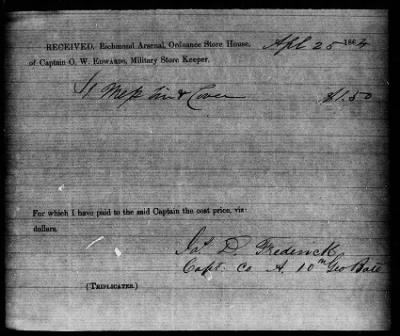 RECEIVED, Richmond Arsenal, Ordnance Store House, Apl 25 1864
of Captain O. W. Edwards, Military Store Keeper,
1 Mess tin & Cover $1.50
For which I have paid to the said Captain the cost price, viz:
dollars.
D. Frederick
Capt. Co A. 10th Geo Batt
(TRIPLICATES.)